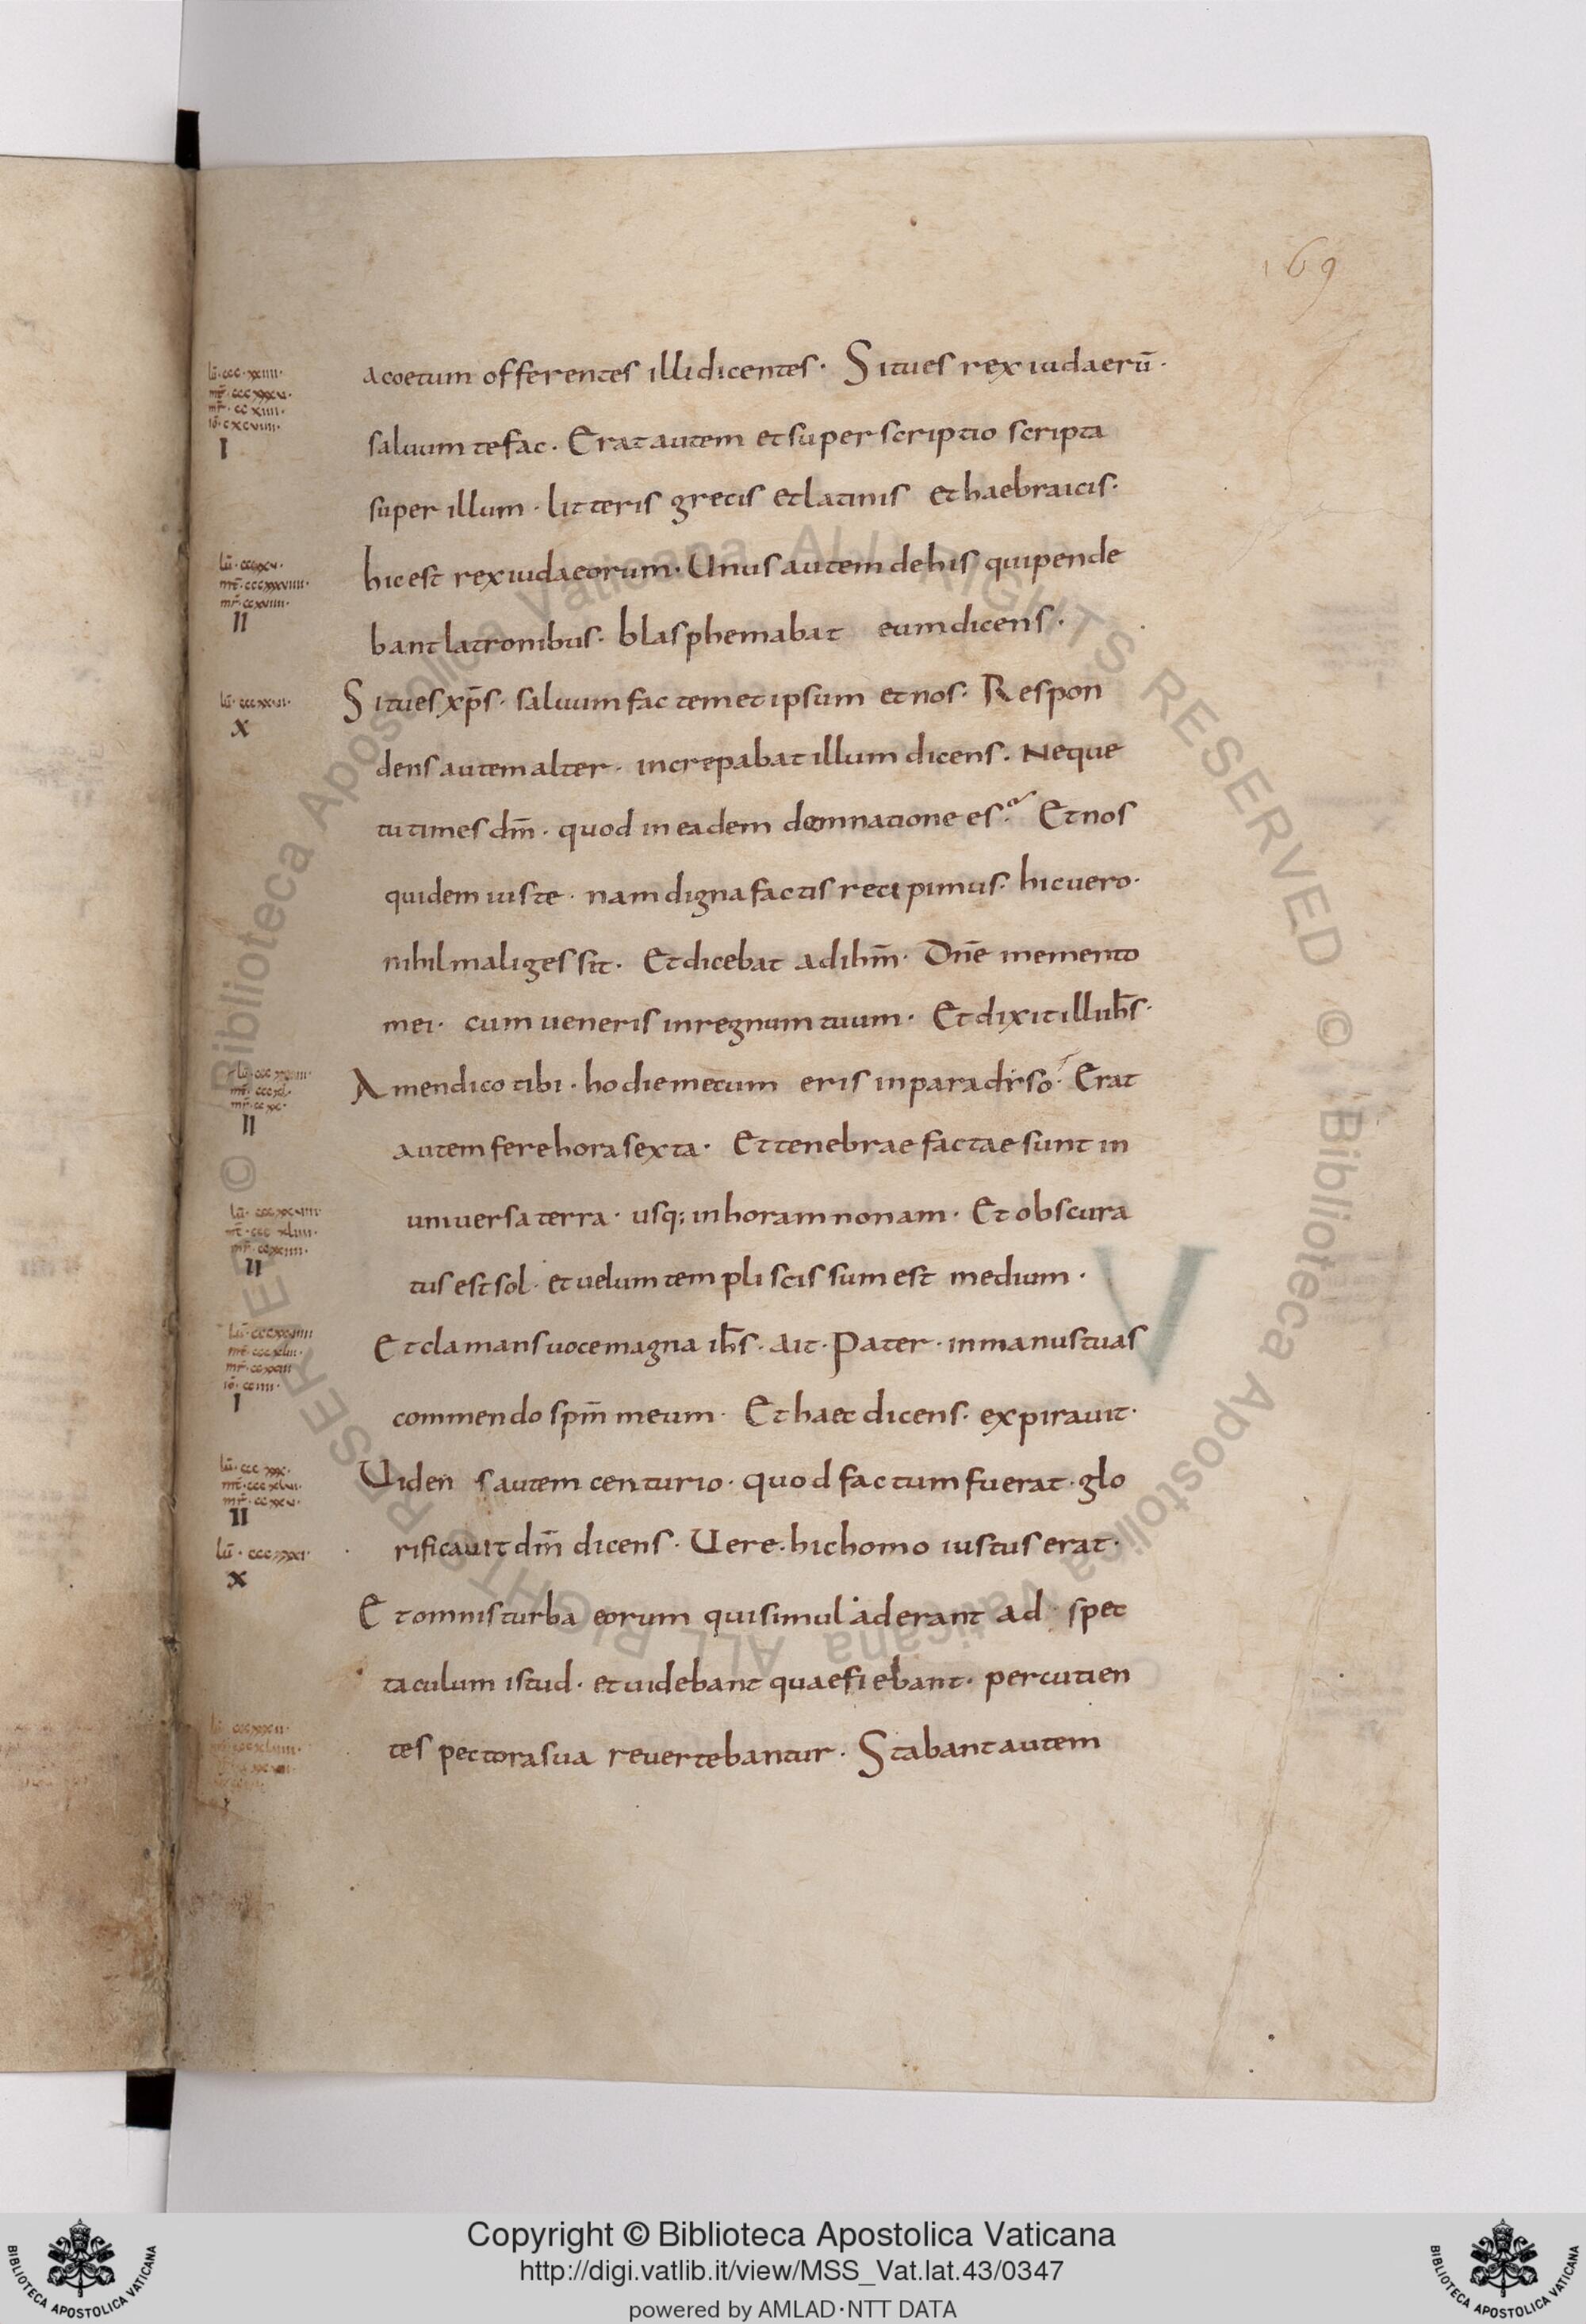 169
acoetum offerentes illi dicentes· Si tu es rex iudaerū·
saluum te fac· Erat autem et superscriptio scripta
super illum· litteris grecis et latinis et haebraicis·
hic est rex iudaeorum· Unus autem de his qui pende
bant latronibus· blasphemabat eum dicens·
Si tu es xp̄s· saluum fac temetipsum et nos· Respon
dens autem alter· increpabat illum dicens· Neque
tu times dm̄· quod in eadem damnatione es· Et nos
quidem iuste· nam digna factis recipimus· hic uero·
nihil mali gessit· Et dicebat ad ihm̄· Dn̄e memento
mei· cum ueneris in regnum tuum· Et dixit illi ih̄s·
Amen dico tibi· hodie mecum eris in paradiso· Erat
autem fere hora sexta· Et tenebrae factae sunt in
uniuersa terra· usq; in horam nonam· Et obscura
tus est sol· et uelum templi scissum est medium·
Et clamans uoce magna ih̄s· ait· Pater· in manus tuas
commendo spm̄ meum· Et haec dicens· expirauit·
Uiden s autem centurio· quod factum fuerat· glo
rificauit dm̄ dicens· Uere· hic homo iustus erat·
Et omnis turba eorum qui simul aderant ad spec
taculum istud· et uidebant quae fiebant· percutien
tes pectora sua reuertebantur· Stabant autem
lū· ccc·xxiiii·
mr̄· cc xiiii·
I
II
X
II
II
I
II
X
Copyright © Biblioteca Apostolica Vaticana
http://digi.vatlib.it/view/MSS_Vat.lat.43/0347
powered by AMLAD·NTT DATA
BIBLIOTECA APOSTOLICA VATICANA
BIBLIOTECA APOSTOLICA VATICANA
© Biblioteca Apostolica Vaticana ALL RIGHTS RESERVED © Biblioteca Apostolica Vaticana ALL RIGHTS RESERVED